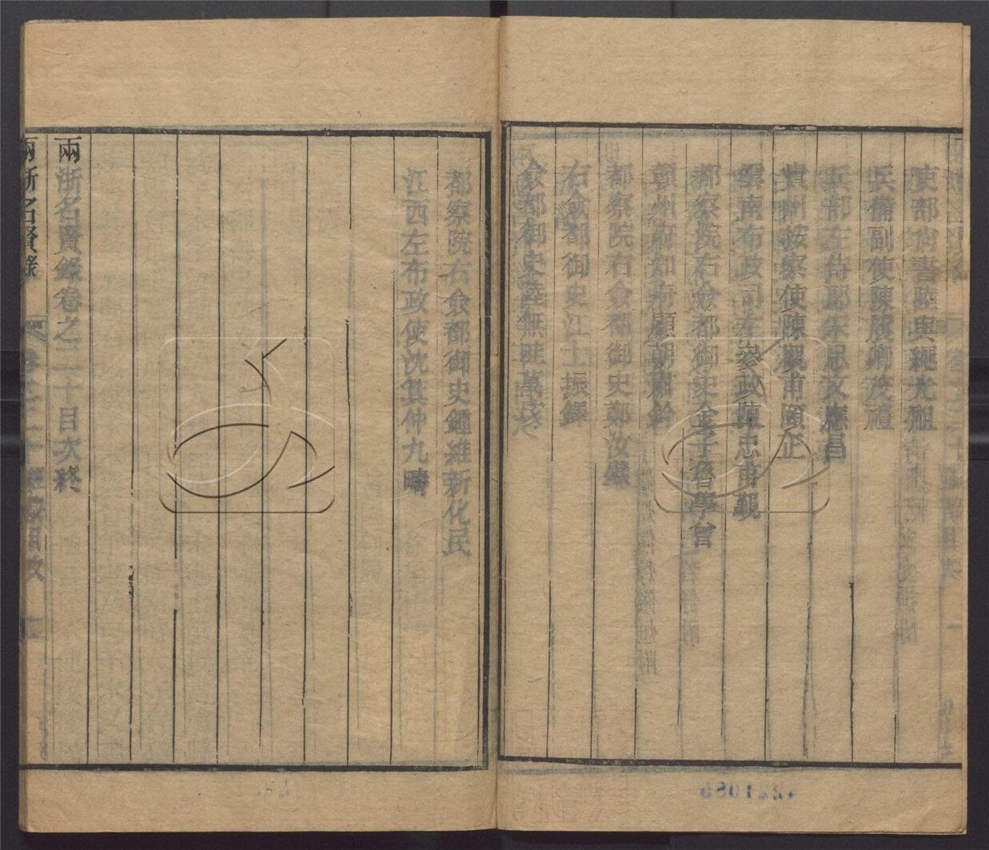 吏部尚書陸與繩光祖
兵備副使陳廣卿茂禮
兵部左侍郎朱思文應昌
貴州按察使陳觀甫頤正
雲南布政司左叅政陳忠甫覲
都察院右僉都御史金子魯學曾
贛州府知府
都察院右僉都御史鄭汝璧
右僉都御史江士振鐸
僉都御史陸無畦萬垓
都察院右僉都御史鍾維新化民
江西左布政使沈箕仲九疇
兩浙名賢錄卷之二十目次終
兩浙名賢錄
卷之二十 經濟目次